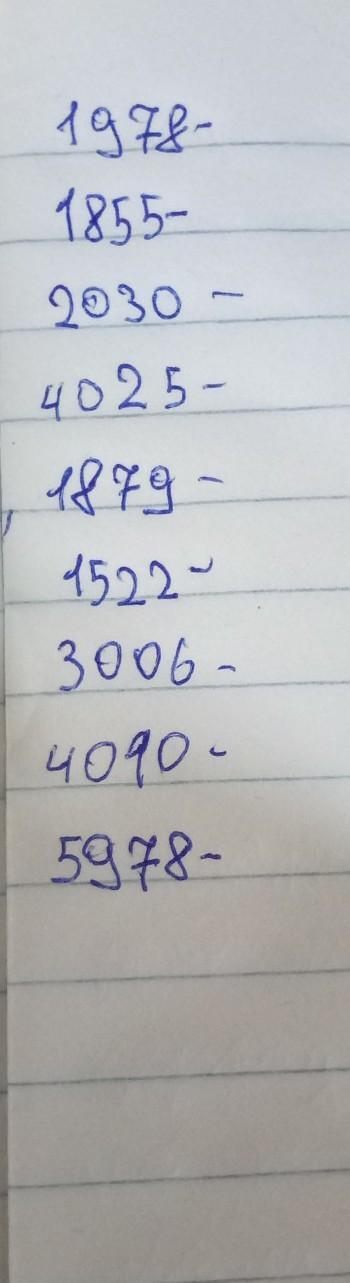 1978-
1855-
2030 -
4025-
1879 -
1522-
3006 -
4090 -
5978-